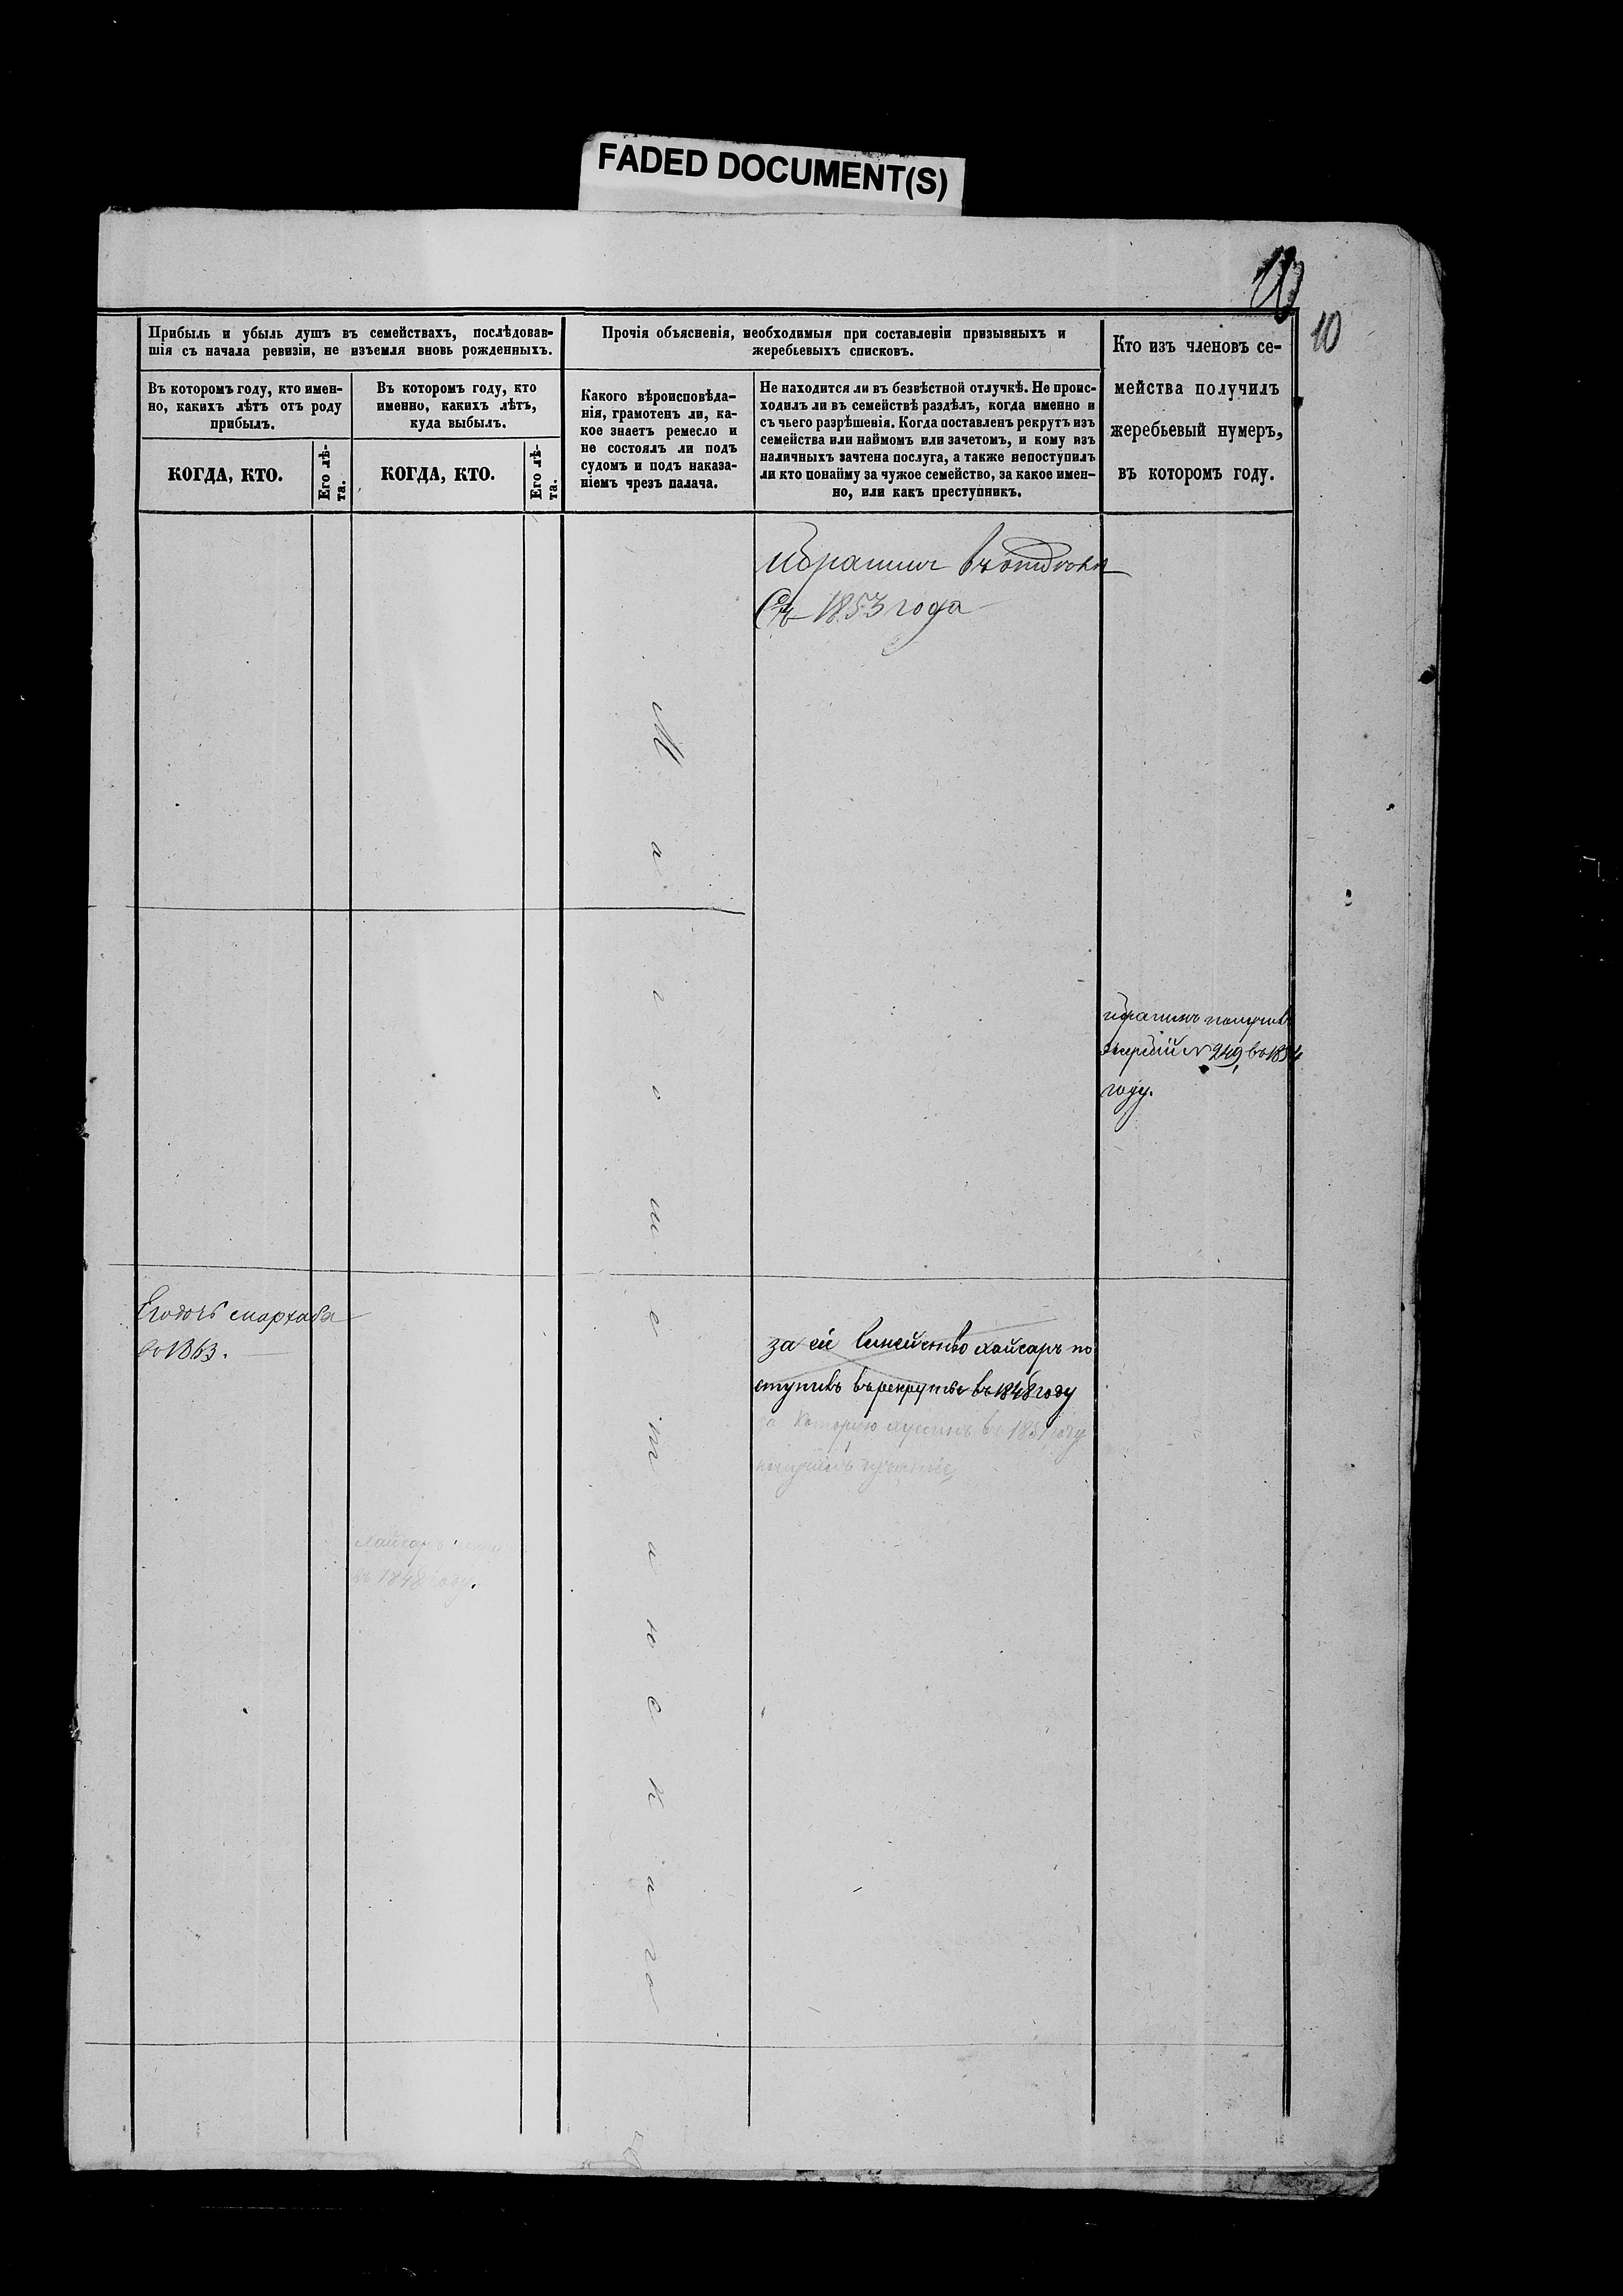 FADED DOCUMENT(S)
10
10
Прибыль и убыль душъ въ семействахъ, послѣдовав-
шія съ начала ревизіи, не изъемля вновь рожденныхъ.
Въ которомъ году, кто имен-
но, какихъ лѣтъ отъ роду
прибылъ.
КОГДА, КТО.
Его лѣ-
та.
Въ которомъ году, кто
именно, какихъ лѣтъ,
куда выбылъ.
КОГДА, КТО.
Его лѣ-
та.
Прочія объясненія, необходимыя при составленіи призывныхъ и
жеребьевыхъ списковъ.
Какого вѣроисповѣда-
нія, грамотенъ ли, ка-
кое знаетъ ремесло и
не состоялъ ли подъ
судомъ и подъ наказа-
ніемъ чрезъ палача.
Не находится ли въ безвѣстной отлучкѣ. Не проис-
ходилъ ли въ семействѣ раздѣлъ, когда именно и
съ чьего разрѣшенія. Когда поставленъ рекрутъ изъ
семейства или наймомъ или зачетомъ, и кому изъ
наличныхъ зачтена послуга, а также непоступилъ
ли кто понайму за чужое семейство, за какое имен-
но, или какъ преступникъ.
Кто изъ членовъ се-
мейства получилъ
жеребьевый нумеръ,
въ которомъ году.
Съ 1853 года
Магометанскаго
№ 249 во 1854
году.
во 1863.
за сіе семейство хайсаръ по
ступилъ въ рекруты въ 1848 году
въ 1851 году
Хайсаръ
въ 1848 году.